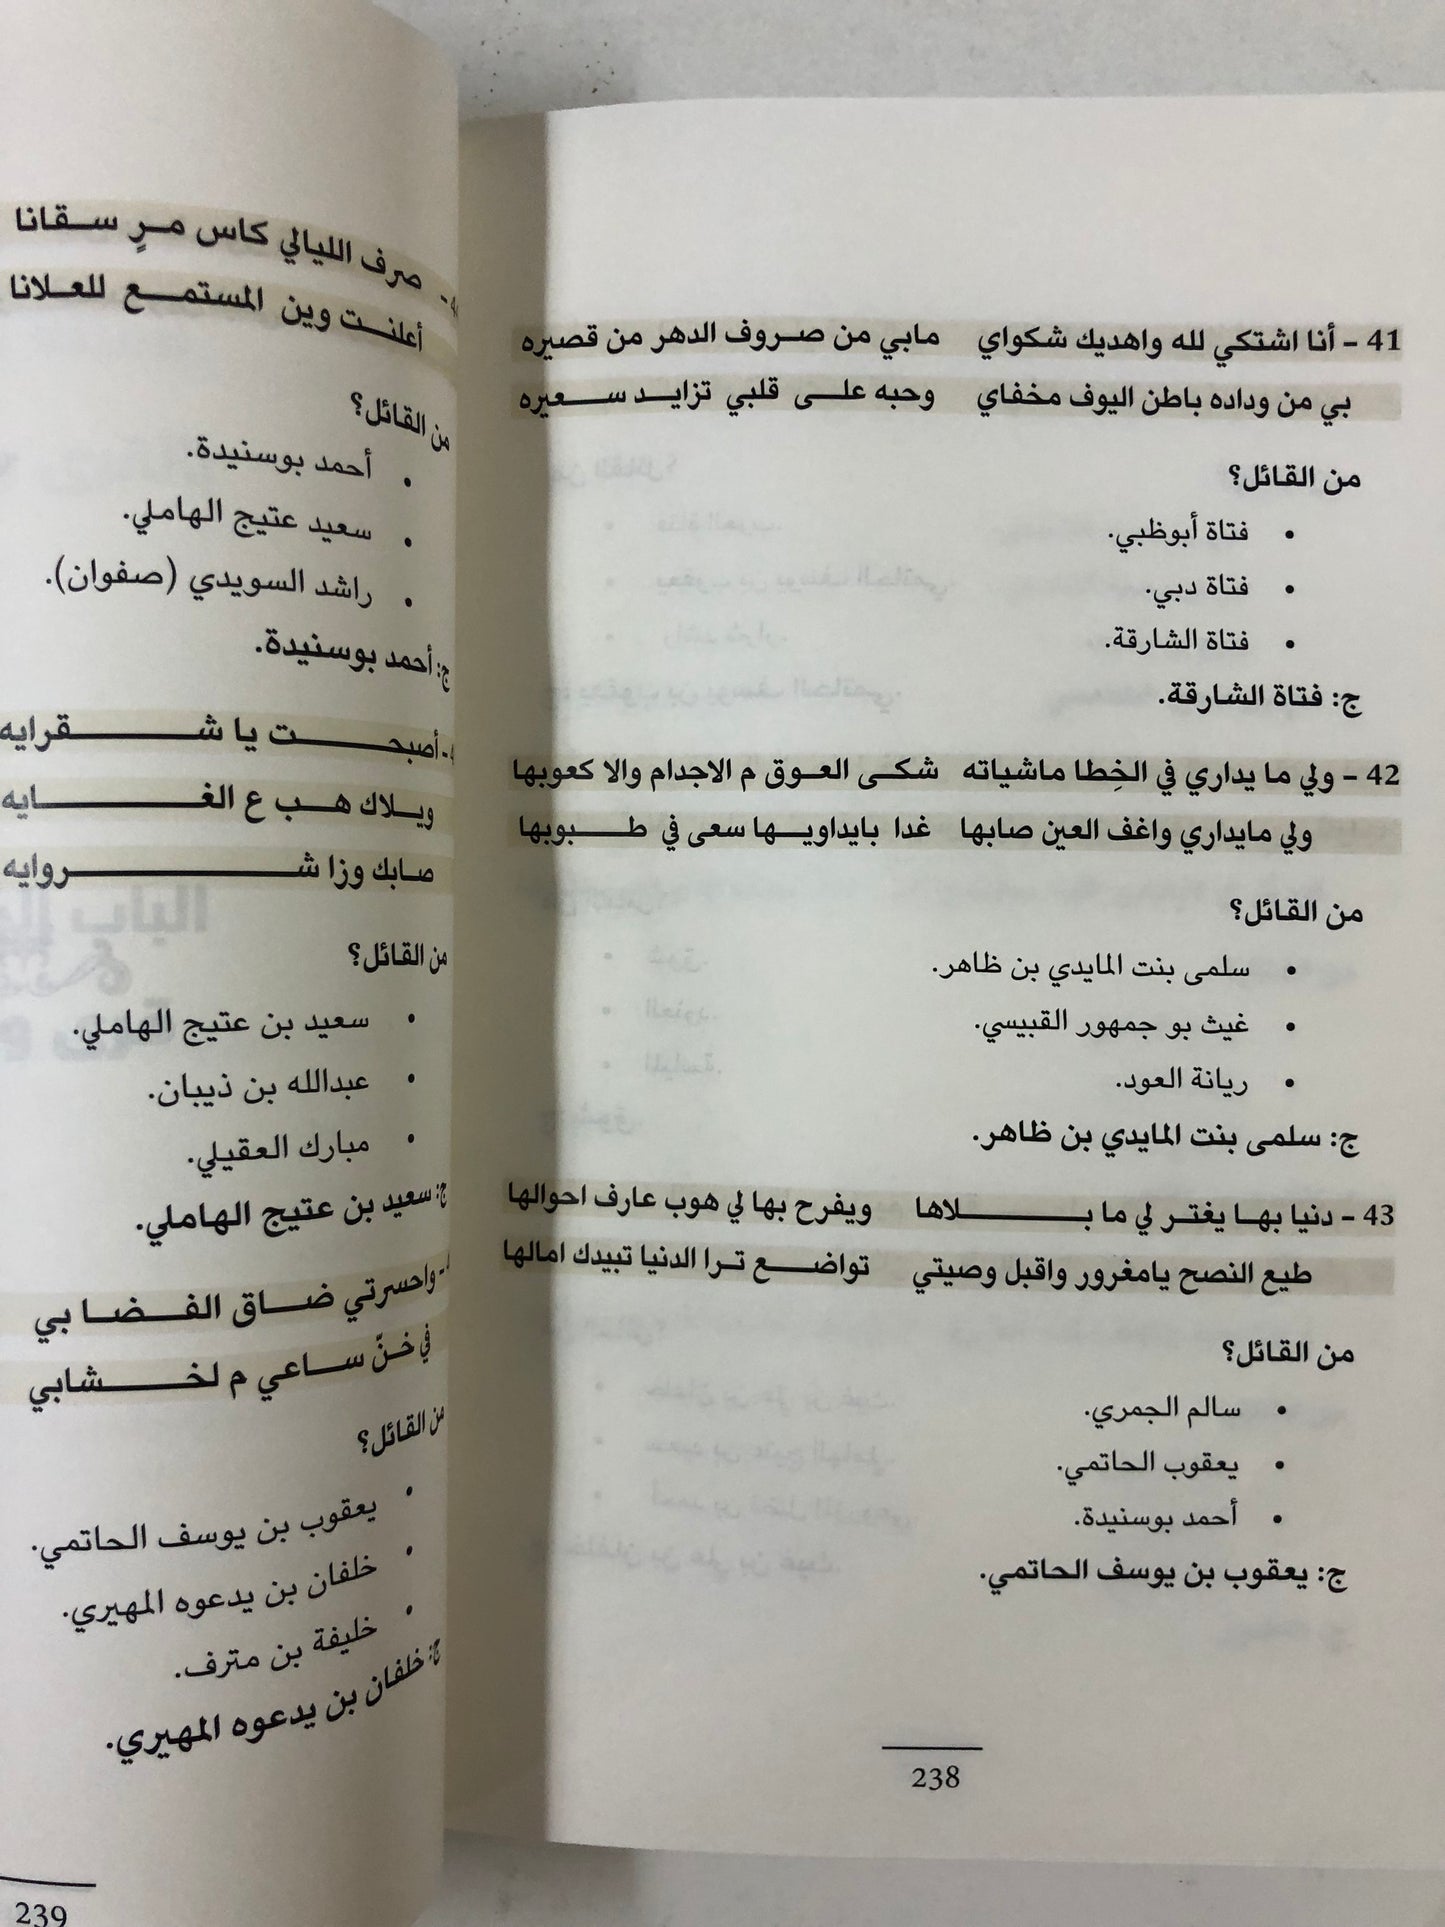 41 – أنا اشتكي لله واهديك شكواي مابي من صروف الدهر من قصيره
بي من وداده باطن اليوف مخفاي وحبه على قلبي تزايد سعيره
من القائل؟
• فتاة أبوظبي.
• فتاة دبي.
• فتاة الشارقة.
ج: فتاة الشارقة.
42 – ولي ما يداري في الخِطا ماشياته شكى العوق م الاجدام والا كعوبها
ولي مايداري واغف العين صابها غدا بايداويها سعى في طبوبها
من القائل؟
• سلمى بنت المايدي بن ظاهر.
• غيث بو جمهور القبيسي.
• ريانة العود.
ج: سلمى بنت المايدي بن ظاهر.
43 – دنيا بها يغتر لي ما بلاها ويفرح بها لي هوب عارف احوالها
طيع النصح يامغرور واقبل وصيتي تواضع ترا الدنيا تبيدك امالها
من القائل؟
• سالم الجمري.
• يعقوب الحاتمي.
• أحمد بوسنيدة.
ج: يعقوب بن يوسف الحاتمي.
238
صرف الليالي كاس مرٍ سقانا
أعلنت وين المستمع للعلانا
من القائل؟
• أحمد بوسنيدة.
• سعيد عتيج الهاملي.
• راشد السويدي (صفوان).
ج: أحمد بوسنيدة.
- أصبحت يا شقرايه
ويلاك هب ع الغايه
صابك وزا شروايه
من القائل؟
• سعيد بن عتيج الهاملي.
• عبدالله بن ذيبان.
• مبارك العقيلي.
ج: سعيد بن عتيج الهاملي.
- واحسرتي ضاق الفضا بي
في خنّ ساعي م لخشابي
من القائل؟
• يعقوب بن يوسف الحاتمي.
• خلفان بن يدعوه المهيري.
• خليفة بن مترف.
ج: خلفان بن يدعوه المهيري.
239